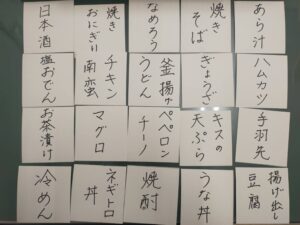 あら汁
焼き
そば
なめろう
焼き
おにぎり
日本酒
ハムカツ
ぎょうざ
釜揚げ
うどん
チキン
南蛮
塩おでん
手羽先
キスの
天ぷら
ペペロン
チーノ
マグロ
お茶漬け
揚げ出し
豆腐
うな丼
焼酎
ネギトロ
丼
冷めん